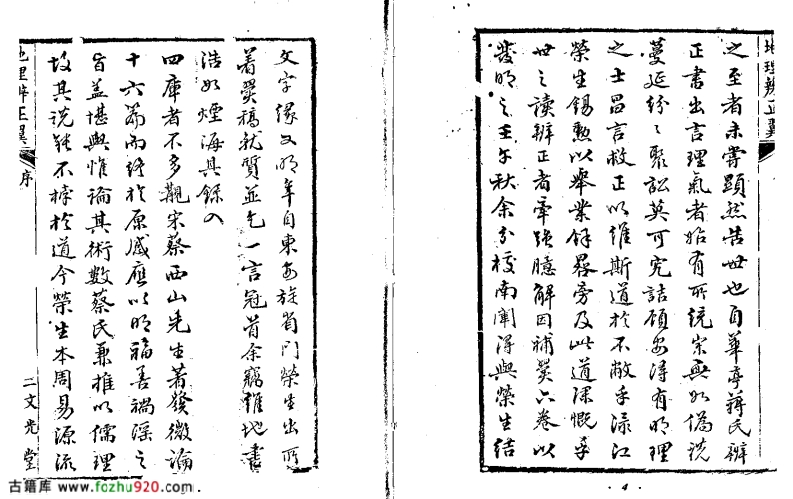 地理辨正翼
之至者未嘗顯然告世也自華亭蔣氏辨
正書出言理氣者始有所統宗無如偽說
蔓延紛々聚訟莫可究詰顧安得有明理
之士昌言救正以維斯道於不敝乎渌江
榮生錫勲以舉業餘畧旁及此道深慨乎
世之讀辨正者牽強臆解因補翼六卷以
發明之壬午秋余分校南闈得與榮生結
文字緣又明年自東安旋省門榮生出所
著翼稿就質並乞一言冠首余竊維地書
浩如煙海其錄入
四庫者不多覯宋蔡西山先生著發微論
十六篇而終於原感應以明福善禍淫之
旨蓋堪輿惟論其術數蔡氏兼推以儒理
故其說能不悖於道今榮生本周易源流
地理辨正翼
序
二 文光堂
古籍库 www.fozhu920.com